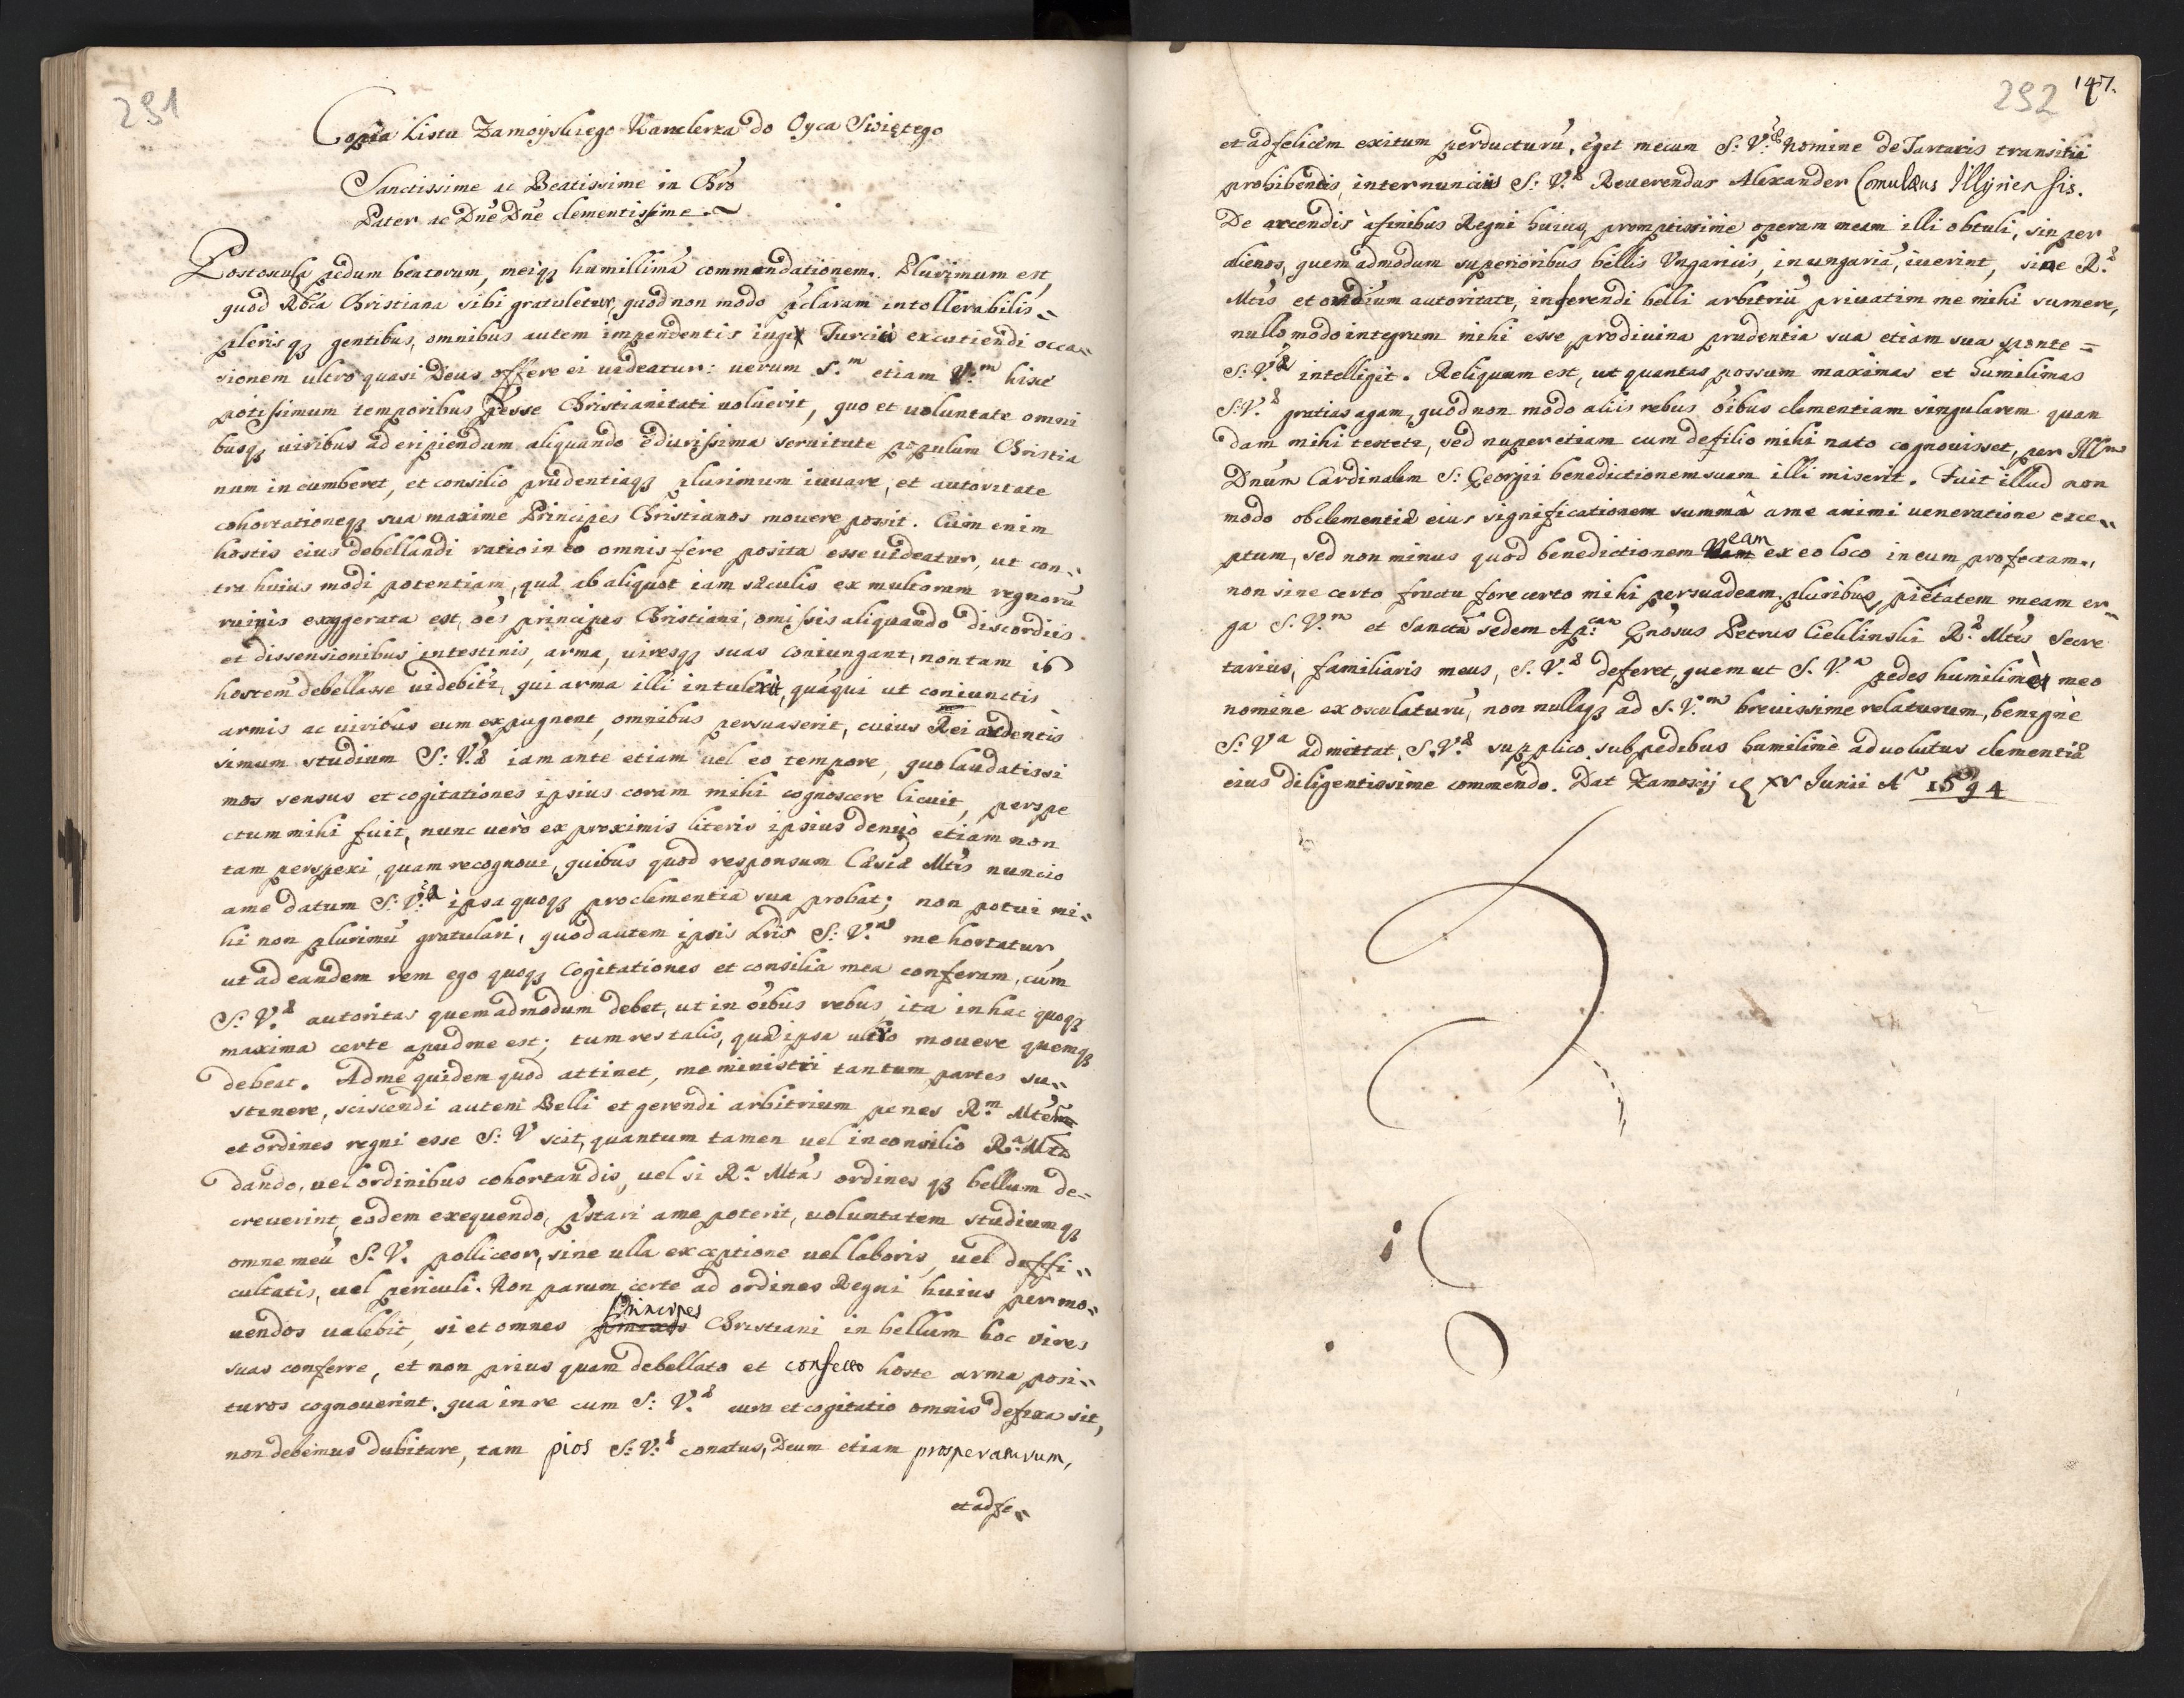 291
Copia Listu Zamoyskiego Kanclerza do Oyca Swiętego
Sanctissime ac Beatissime in Chrō
Pater ac Dnē Dnē clementissime.~
Post oscula pedum beatorum, meiqꝫ humillimā commendationem. Plurimum est,
quod Rbca Christiana sibi gratuletur, quod non modo p̄claram intollerabilis=
plerisqꝫ gentibus, omnibus autem impendentis iugi Turcici excutiendi occa=
sionem ultro quasi Deus offere ei uideatur: uerum S.m etiam V.m hisce
potissimum temporibus p̄esse Christianitati uoluerit, quo et uoluntate omni
busqꝫ uiribus ad eripiendum aliquando è durissima seruitute populum Christia
num incumberet, et consilio prudentiaqꝫ plurimum iuuare, et autoritate
cohortationeqꝫ sua maxime Principes Christianos mouere possit. Cum enim
hostis eius debellandi ratio in eo omnis fere posita esse uideatur, ut con=
tra huius modi potentiam, quæ ab aliquot iam sæculis ex multorum regnorū
ruinis exaggerata est, oēs principes Christiani, omissis aliquando discordiis
et dissensionibus intestinis, arma, uiresqꝫ suas coniungant, non tam is
hostem debellasse uidebitr, qui arma illi intulerit, quā qui ut coniunctis
armis ac uiribus eum expugnent, omnibus persuaserit, cuius Rei ardentis
simum studium S: V.æ iam ante etiam uel eo tempore, quo laudatissi
mos sensus et cogitationes ipsius coram mihi cognoscere licuit, perspe
ctum mihi fuit, nunc uero ex proximis literis ipsius denuò etiam non
tam perspexi, quam recognoui, quibus quod responsum Cæsiæ Mtis nuncio
a me datum S: V.ra ipsa quoqꝫ pro clementia sua probat; non potui mi=
hi non plurimū gratulari, quod autem ipsis Lris S: V.a me hortatur,
ut ad eandem rem ego quoqꝫ Cogitationes et consilia mea conferam, cùm
S: V.æ autoritas quemadmodum debet, ut in oībus rebus, ita in hac quoqꝫ
maxima certe apud me est; tum res talis, quæ ipsa ultro mouere quemqꝫ
debeat. Ad me quidem quod attinet, me ministri tantum partes su=
stinere, sciscendi autem Belli et gerendi arbitrium penes R.m Mtem
et ordines regni esse S: V scit, quantum tamen uel in consilio R.æ Mti
dando, uel ordinibus cohortandis, uel si R.a Mtas ordinesqꝫ bellum de=
creuerint, eodem exequendo, p̄stari a me poterit, uoluntatem studiumqꝫ
omne meū S. V. polliceor, sine ulla exceptione uel laboris, uel diffi=
cultatis, uel periculi. Non parum certe ad ordines Regni huius permo=
uendos ualebit, si et omnes Principes Christiani in bellum hoc vires
suas conferre, et non prius quam debellato et confecto hoste arma posi=
turos cognouerint. qua in re cum S: V.æ cura et cogitatio omnis defixa sit,
non debemus dubitare, tam pios S: V.æ conatus, Deum etiam prosperaturum,
et ad fe=
292 147.
et ad felicem exitum perducturū, eget mecum S: V.æ Nomine de Tartaris transitu
prohibendis, internuncius S: V.æ Reuerendus Alexander Comulæus Illyriensis.
De arcendis à finibus Regni huius, promptissime operam meam illi obtuli, sin per
alienos, quemadmodum superioribus bellis Vngaricis, in ungariā, iuerint, sine R.æ
Mtis et ordium autoritate, inferendi belli arbitriū priuatim me mihi sumere,
nullo modo integrum mihi esse pro diuina prudentia sua etiam sua sponte =
S: V.æ intelligit. Reliquum est, ut quantas possum maximas et humilimas
S: V.æ gratias agam, quod non modo aliis rebus oībus clementiam singularem quan
dam mihi testetr, sed nuper etiam cum de filio mihi nato cognouisset, per Illm
Dnum Cardinalem S: Georgii benedictionem suam illi miserit. Fuit illud non
modo ob clementiæ eius significationem summâ a me animi ueneratione exce=
ptum, sed non minus quod benedictionem eam ex eo loco in eum profectam,
non sine certo fructu fore certo mihi persuadeam, pluribus, pietatem meam er=
ga S. V.m et Sanctā sedem Ap.cam Gnōsus Petrus Cieklinski R.æ Mtis Secre
tarius, familiaris meus, S. V.æ deferet, quem ut S. V.æ pedes humilimè meo
nomine exosculaturū, non nullaqꝫ ad S. V.m breuissime relaturum, benignè
S: Va admittat, S. V.æ supplico, sub pedibus humilimè aduolutus clementiæ
eius diligentissime commendo. Dat Zamoscij XV Junii Ao 1594